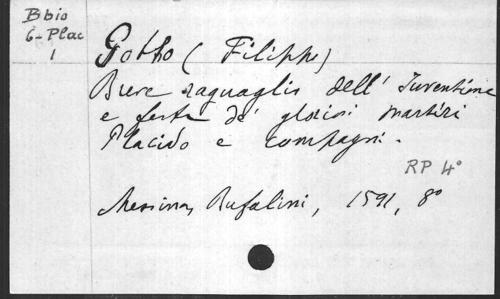 Bbio
6-Plac
1
Gotho (Filippo)
Breve raguaglio dell' Inventione
e feste de' gloriosi martiri
Placido e compagni.
RP 4°
Messina, Bufalini, 1591, 8°